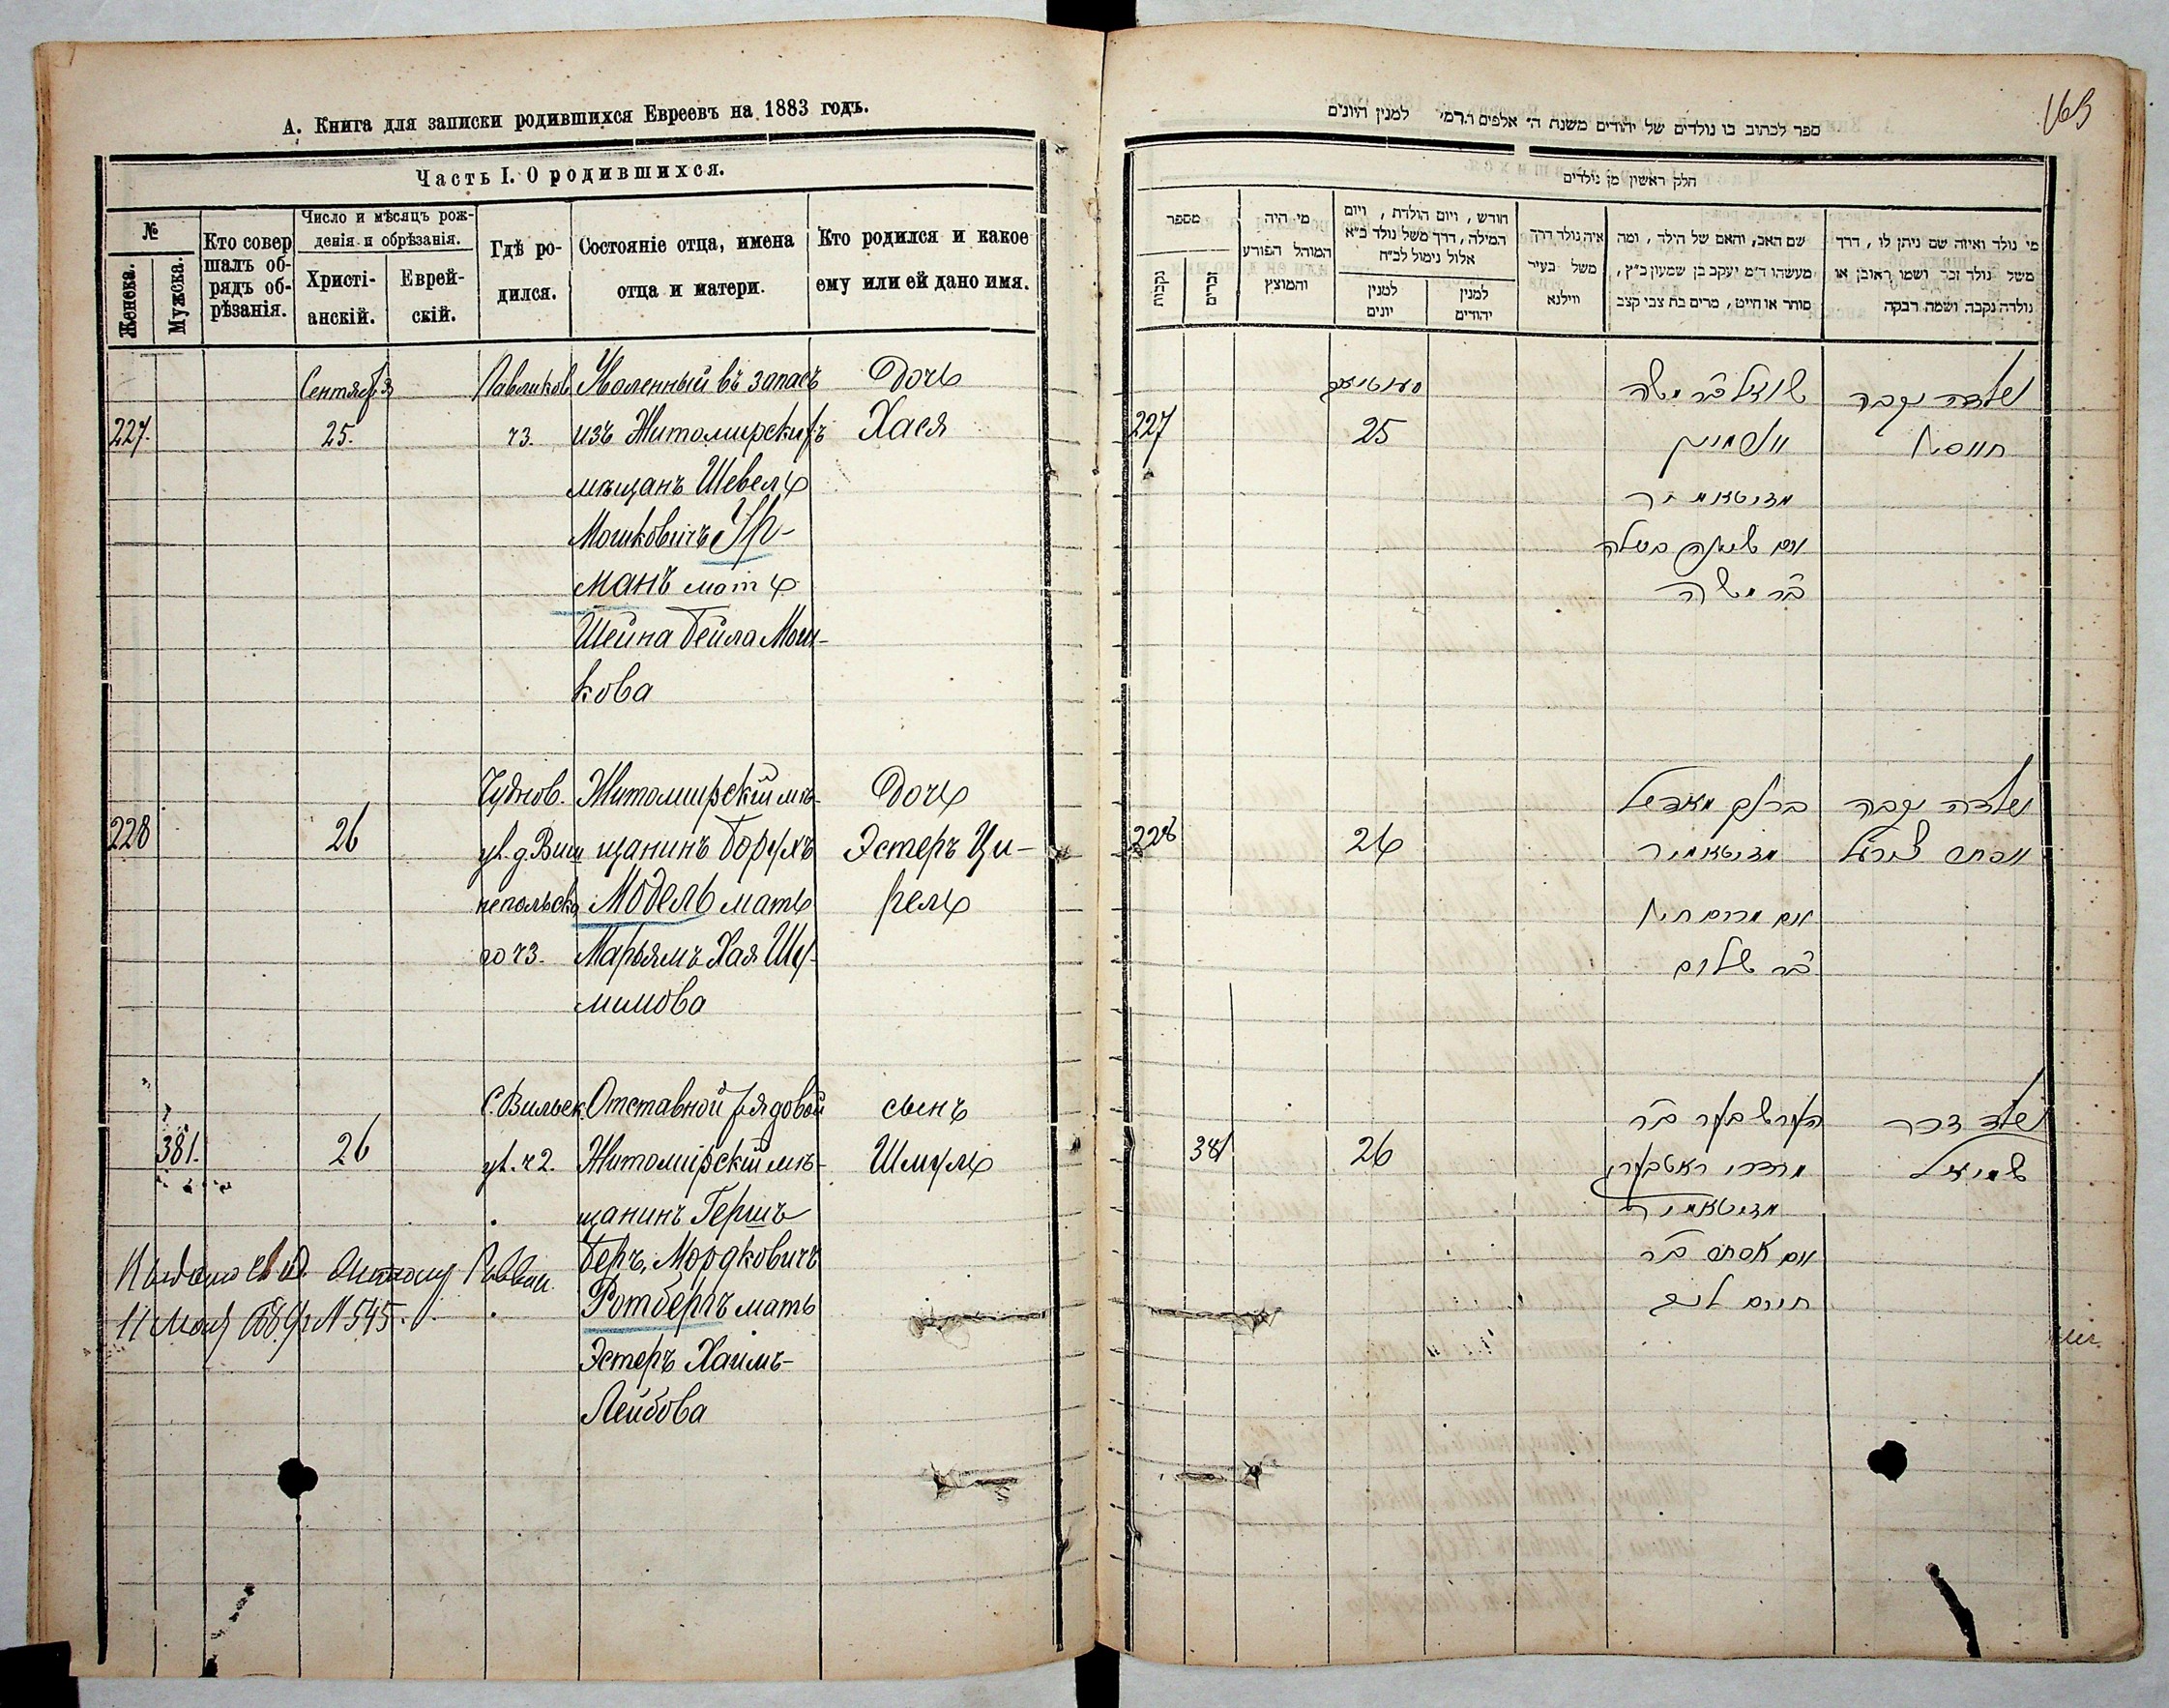 А. Книга для записки родившихся Евреевъ на 1883 годъ.
Часть I. О родившихся.
№
Женска.
Мужска.
Кто совер
шалъ об-
рядъ об-
рѣзанія.
Число и мѣсяцъ рож-
денія и обрѣзанія.
Христі-
анскій.
Еврей-
скій.
Гдѣ ро-
дился.
Состояніе отца, имена
отца и матери.
Кто родился и какое
ему или ей дано имя.
227.
Сентября
25.
Павликов
ч3.
Уволенный въ запасъ
изъ Житомирскихъ
мѣщанъ Шевель
Мошковичъ Ур-
манъ мать
Шейна Бейла Мош-
кова
Дочь
Хася
228
26
Чуднов.
ул. д. Виш
непольска
го ч3.
Житомирскій мѣ-
щанинъ Борухъ
Модель мать
Марьямъ Хая Шу-
лимова
Дочь
Эстеръ Ци-
рель
381.
26
С. Вильск.
ул. ч2.
Отставной рядовой
Житомірскій мѣ-
щанинъ Гершъ
Беръ, Мордковичъ
Ротбергъ мать
Эстеръ Хаимъ-
Лейбова
сынъ
Шмуль
11 Мая № 545.
163
ספר לכתוב בו נולדים של יהודים משנת ה' אלפים תרמ' למנין היונים
חלק ראשון מן נולדים
מספר
נקבות
זכרים
מי היה
המוהל הפורע
והמוצץ
חודש, ויום הולדת, ויום
המילה, דרך משל נולד כ"א
אלול נימול לכ"ח
למנין
יונים
למנין
יהודים
איה נולד דרך
משל בעיר
ווילנא
שם האב, והאם של הילד, ומה
מעשהו ד"מ יעקב בן שמעון כ"ץ,
סוחר או חייט, מרים בת צבי קצב
מי נולד ואיזה שם ניתן לו, דרך
משל נולד זכר ושמו ראובן או
נולדה נקבה ושמה רבקה
227
25
משה
זיטאמיר
אם שיינה ביילה
בר משה
נולדה נקבה
חיסיא
228
26
ברוך מאדיל
זיטאמיר
אם מרים חיה
בר שלום
נולדה נקבה
אסתר צירעל
381
26
הערש בער בר
מרדכי ראטבערג
זיטאמיר
אם אסתר בר
חיים ליב
נולד זכר
שמואל